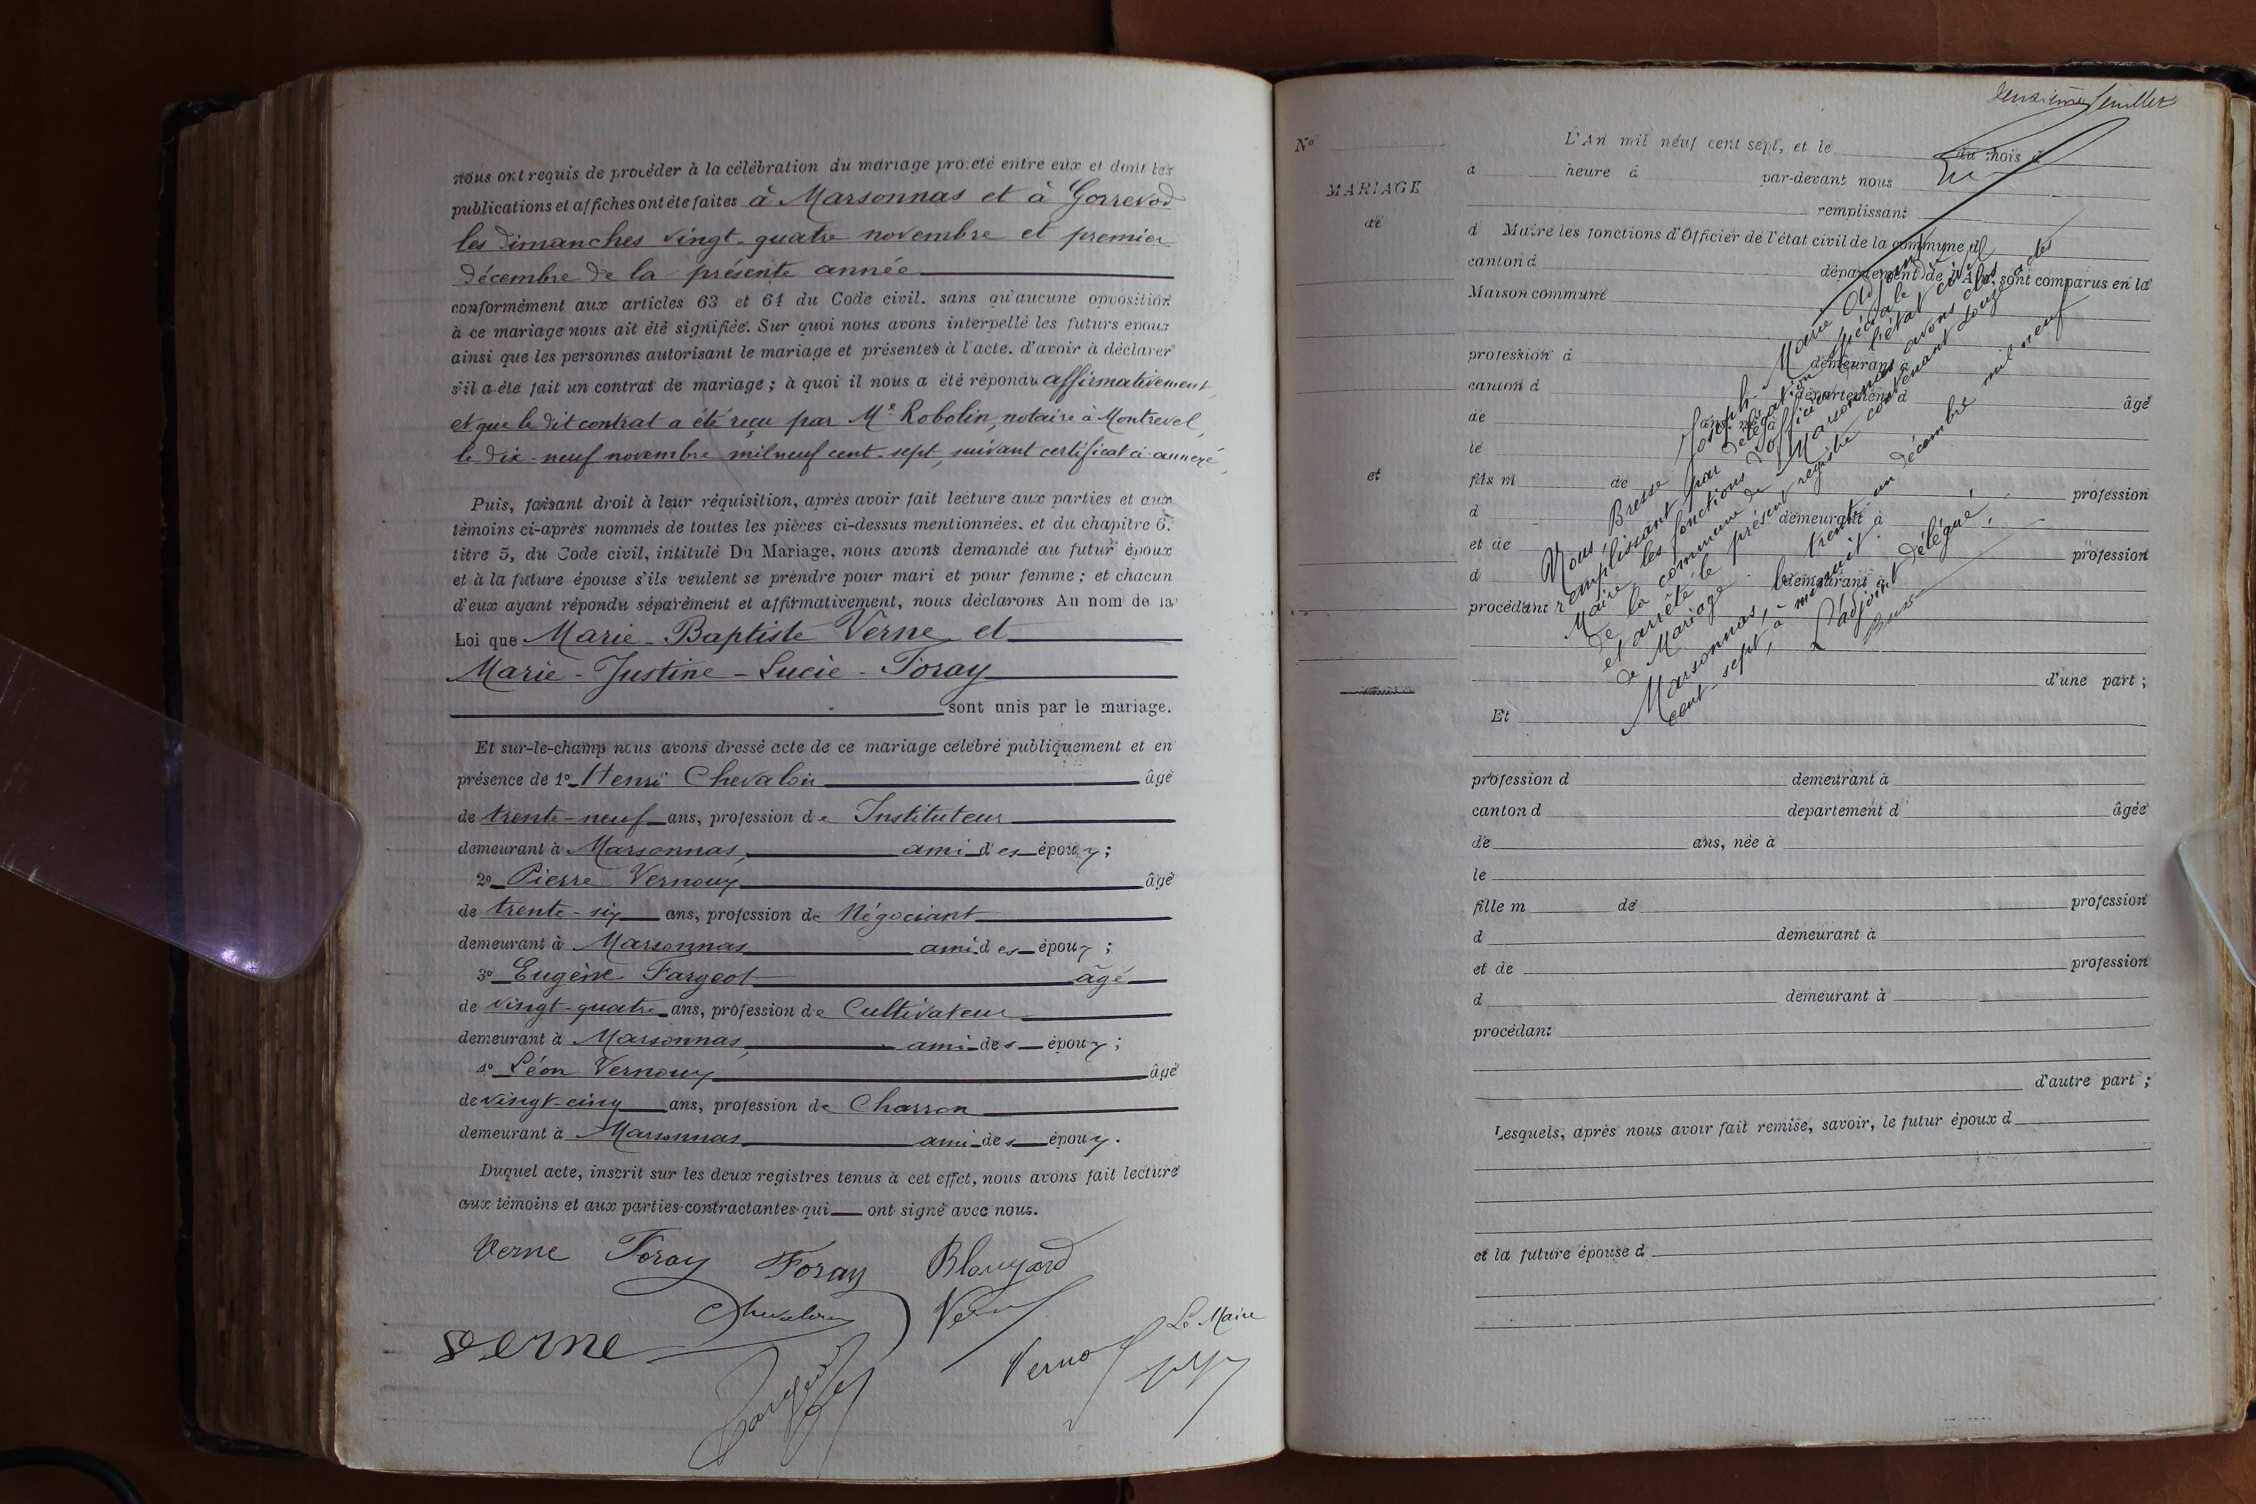 nous ont requis de procéder à la célébration du mariage projeté entre eux et dont les
publications et affiches ont été faites à Marsonnas et à Gorrevod
les dimanches vingt-quatre novembre et premier
décembre de la présente année
conformément aux articles 63 et 64 du Code civil, sans qu'aucune opposition
à ce mariage nous ait été signifiée. Sur quoi nous avons interpellé les futurs époux
ainsi que les personnes autorisant le mariage et présentes à l'acte, d'avoir à déclarer
s'il a été fait un contrat de mariage ; à quoi il nous a été répondu affirmativement,
et que le dit contrat a été reçu par Me Robolin, notaire à Montrevel,
le dix-neuf novembre mil neuf cent-sept, suivant certificat ci-annexé,
Puis, faisant droit à leur réquisition, après avoir fait lecture aux parties et aux
témoins ci-après nommés de toutes les pièces ci-dessus mentionnées, et du chapitre 6,
titre 5, du Code civil, intitulé Du Mariage, nous avons demandé au futur époux
et à la future épouse s'ils veulent se prendre pour mari et pour femme ; et chacun
d'eux ayant répondu séparément et affirmativement, nous déclarons Au nom de la
Loi que Marie-Baptiste Verne et
Marie-Justine-Lucie-Foray
sont unis par le mariage.
Et sur-le-champ nous avons dressé acte de ce mariage célébré publiquement et en
présence de 1º Henri Chevalon âgé
de trente-neuf ans, profession de Instituteur
demeurant à Marsonnas, ami des époux ;
2º Pierre Vernoux âgé
de trente-six ans, profession de Négociant
demeurant à Marsonnas ami des époux ;
3º Eugène Fargeot âgé
de vingt-quatre ans, profession de Cultivateur
demeurant à Marsonnas, ami des époux ;
4º Léon Vernoux âgé
de vingt-cinq ans, profession de Charron
demeurant à Marsonnas ami des époux.
Duquel acte, inscrit sur les deux registres tenus à cet effet, nous avons fait lecture
aux témoins et aux parties contractantes qui ont signé avec nous.
Verne Foray Foray Blouzard
Chevalon
Verne
Le Maire
deuxième feuillet
Nº
MARIAGE
de
et
L'An mil neuf cent sept, et le du mois d
à heure d par-devant nous
remplissant
d Maire les fonctions d'Officier de l'état civil de la commune d
canton d département de l'Ain, sont comparus en la
Maison commune
profession d demeurant à
canton d département d âgé
de ans, né à
le
fils m de profession
d demeurant à
et de profession
d demeurant à
procédant
d'une part ;
Nous, Bresse Joseph-Marie Adjoint
remplissant par délégation spéciale du
Maire les fonctions d'officier de l'état civil
de la commune de Marsonnas avons clos
et arrêté le présent registre contenant douze actes
de Mariage
Marsonnas, le trente un décembre mil neuf
cent-sept, à minuit.
L'adjoint délégué,
Et
profession d demeurant à
canton d département d âgée
de ans, née à
le
fille m de profession
d demeurant à
et de profession
d demeurant à
procédant
d'autre part ;
Lesquels, après nous avoir fait remise, savoir, le futur époux d
et la future épouse d